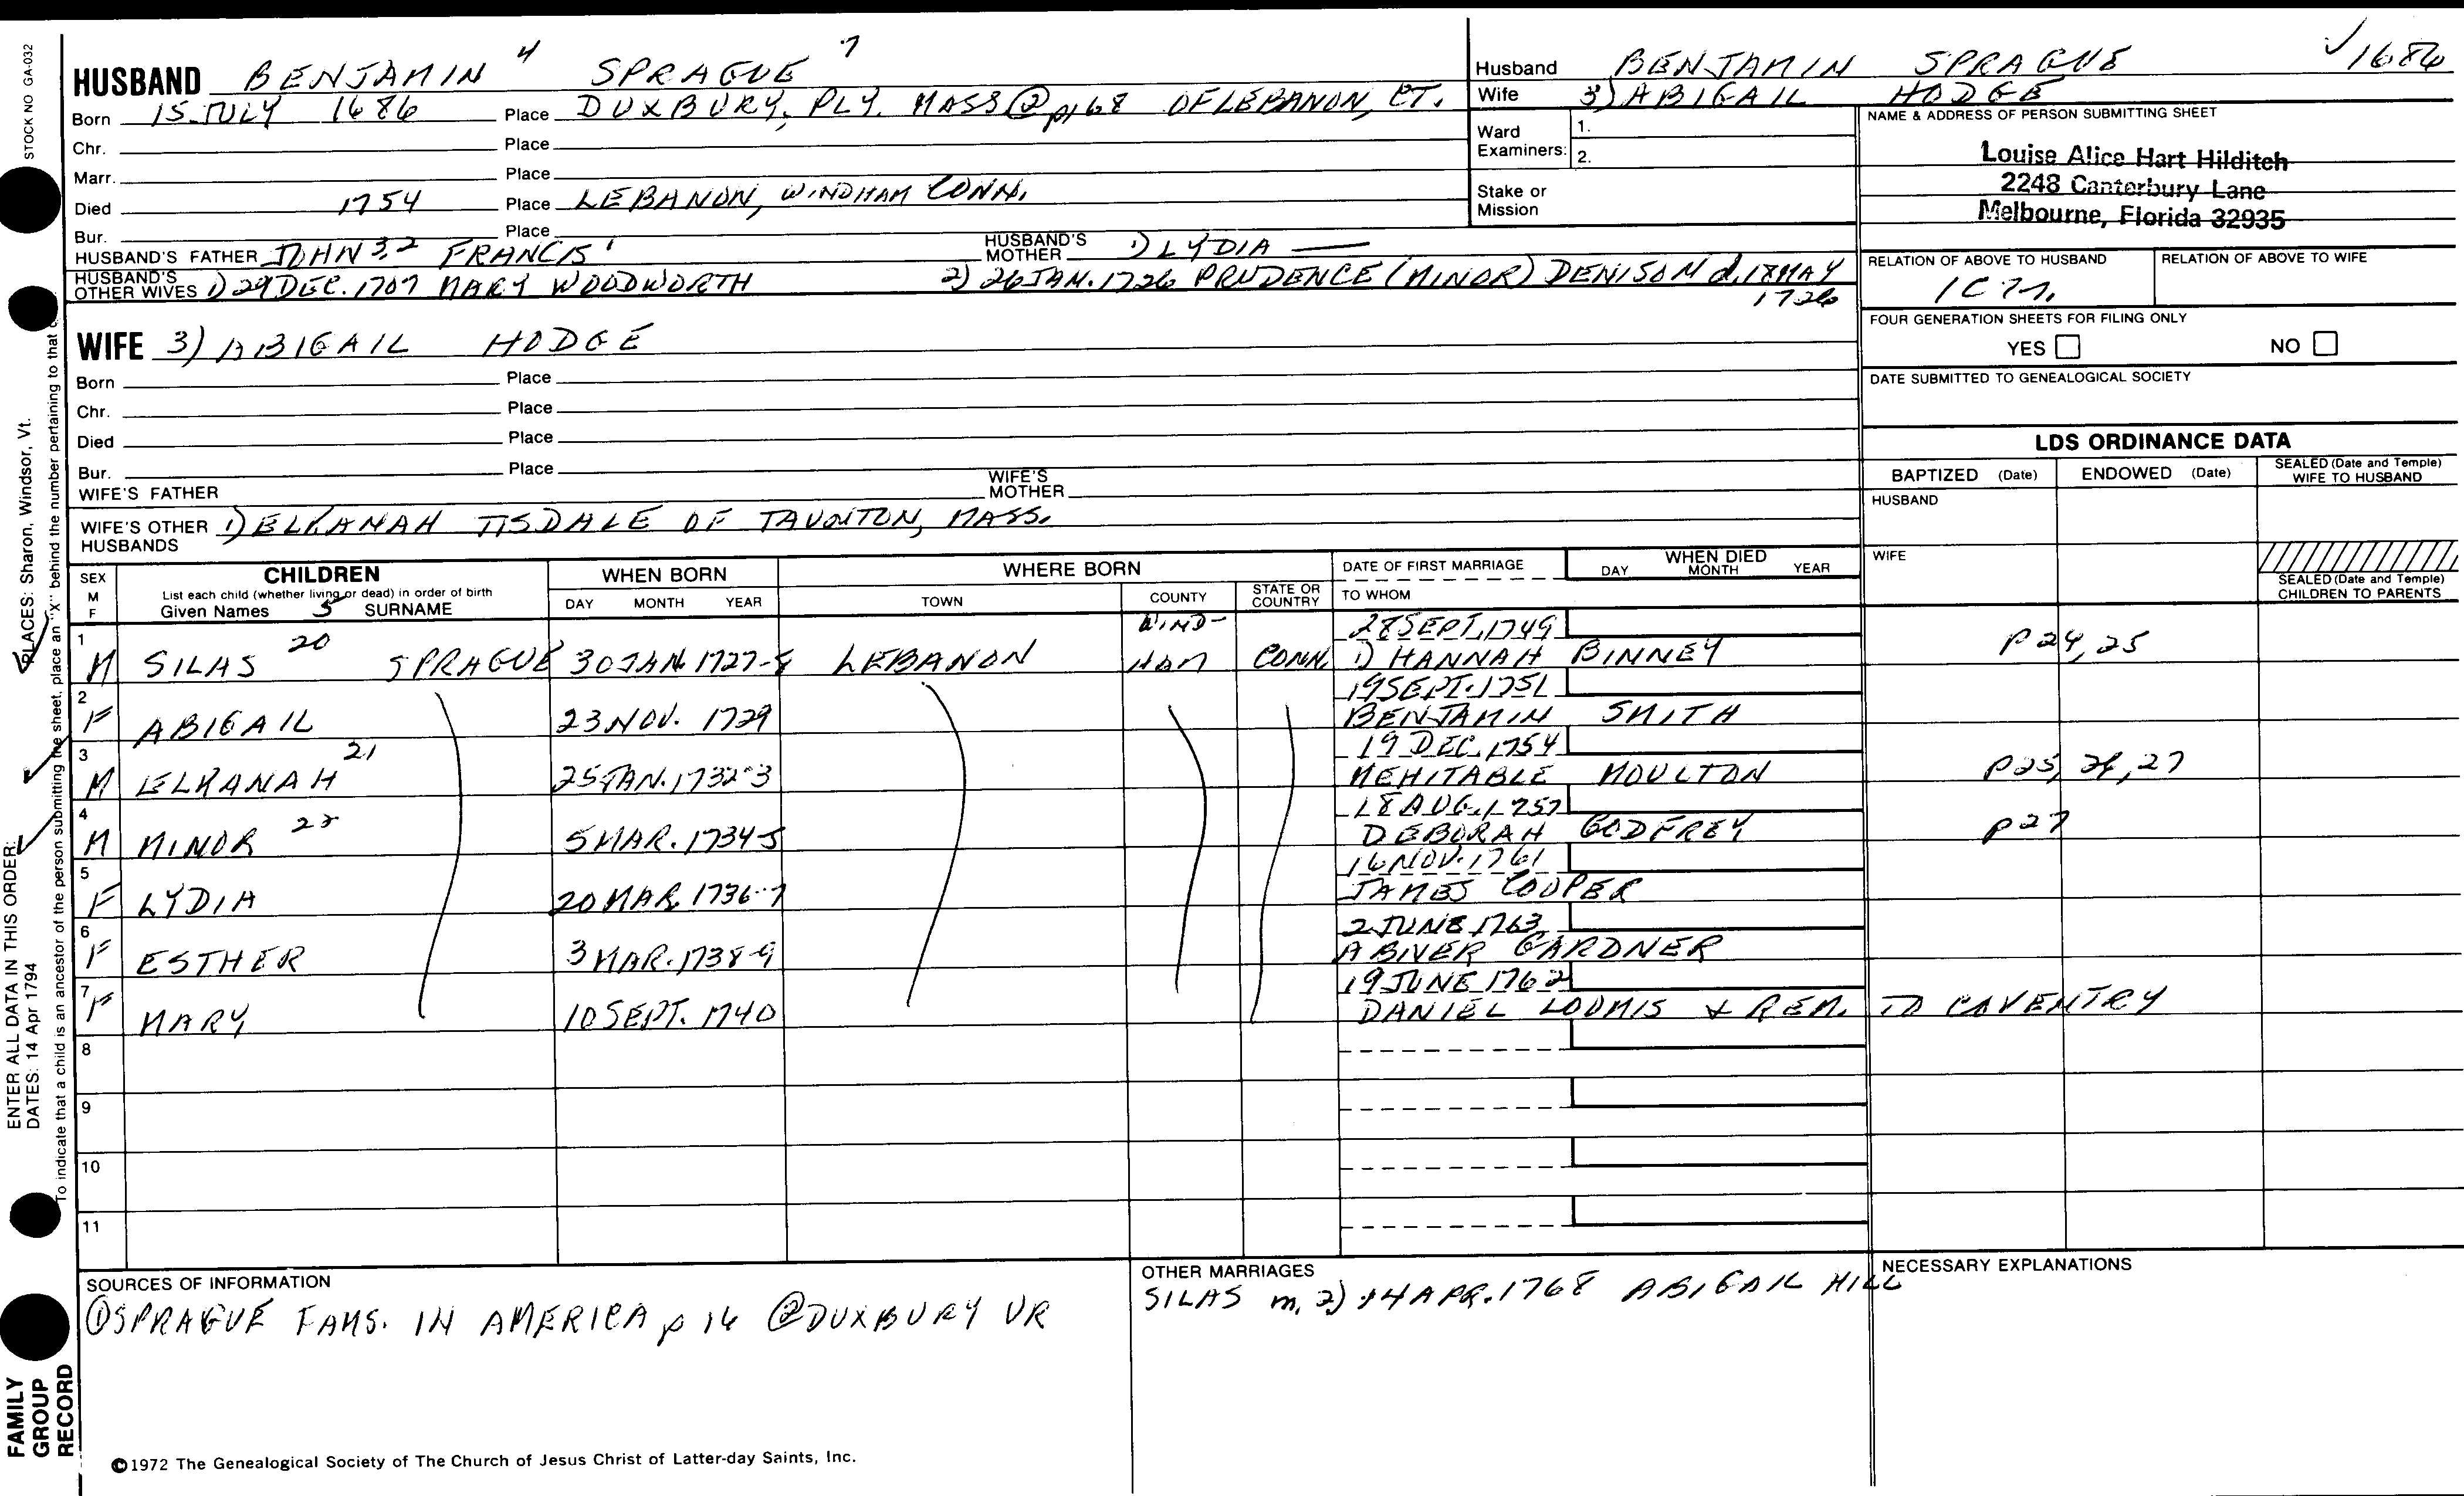 STOCK NO GA-032
HUSBAND BENJAMIN 4 SPRAGUE 7
Born 15 JULY 1686 Place DUXBURY, PLY. MASS ② p168 OF LEBANON, CT.
Chr. Place
Marr. Place
Died 1754 Place LEBANON, WINDHAM CONN.
Bur. Place
HUSBAND'S FATHER JOHN 3,2 FRANCIS 1 HUSBAND'S MOTHER 1) LYDIA —
HUSBAND'S OTHER WIVES 1) 29 DEC. 1707 MARY WOODWORTH 2) 26 JAN. 1726 PRUDENCE (MINOR) DENISON d. 18 MAY 1726
WIFE 3) ABIGAIL HODGE
Born Place
Chr. Place
Died Place
Bur. Place
WIFE'S FATHER WIFE'S MOTHER
WIFE'S OTHER HUSBANDS 1) ELKANAH TISDALE OF TAUNTON, MASS.
Husband BENJAMIN SPRAGUE ✓1686
Wife 3) ABIGAIL HODGE
Ward Examiners: 1.
2.
Stake or Mission
NAME & ADDRESS OF PERSON SUBMITTING SHEET
Louise Alice Hart Hilditch
2248 Canterbury Lane
Melbourne, Florida 32935
RELATION OF ABOVE TO HUSBAND RELATION OF ABOVE TO WIFE
1C 7r.
FOUR GENERATION SHEETS FOR FILING ONLY
YES NO
DATE SUBMITTED TO GENEALOGICAL SOCIETY
LDS ORDINANCE DATA
BAPTIZED (Date) ENDOWED (Date) SEALED (Date and Temple) WIFE TO HUSBAND
HUSBAND
WIFE
SEALED (Date and Temple) CHILDREN TO PARENTS
SEX M F CHILDREN List each child (whether living or dead) in order of birth Given Names 5 SURNAME WHEN BORN DAY MONTH YEAR WHERE BORN TOWN COUNTY STATE OR COUNTRY DATE OF FIRST MARRIAGE TO WHOM WHEN DIED DAY MONTH YEAR
1 M SILAS 20 SPRAGUE 30 JAN. 1727-8 LEBANON WIND-HAM CONN. 28 SEPT. 1749 1) HANNAH BINNEY p 24, 25
2 F ABIGAIL 23 NOV. 1729 19 SEPT. 1751 BENJAMIN SMITH
3 M ELKANAH 21 25 JAN. 1732-3 19 DEC. 1754 MEHITABLE MOULTON p25, 26, 27
4 M MINOR 22 5 MAR. 1734-5 18 AUG. 1757 DEBORAH GODFREY p27
5 F LYDIA 20 MAR. 1736-7 16 NOV. 1761 JAMES COOPER
6 F ESTHER 3 MAR. 1738-9 2 JUNE 1763 ABIVER GARDNER
7 F MARY 10 SEPT. 1740 19 JUNE 1762 DANIEL LOOMIS & REM. TO COVENTRY
8
9
10
11
SOURCES OF INFORMATION
① SPRAGUE FAMS. IN AMERICA p 16 ② DUXBURY VR
OTHER MARRIAGES
SILAS m. 2) 14 APR. 1768 ABIGAIL HILL
NECESSARY EXPLANATIONS
©1972 The Genealogical Society of The Church of Jesus Christ of Latter-day Saints, Inc.
FAMILY GROUP RECORD
ENTER ALL DATA IN THIS ORDER:
DATES: 14 Apr 1794
PLACES: Sharon, Windsor, Vt.
To indicate that a child is an ancestor of the person submitting the sheet, place an "X" behind the number pertaining to that